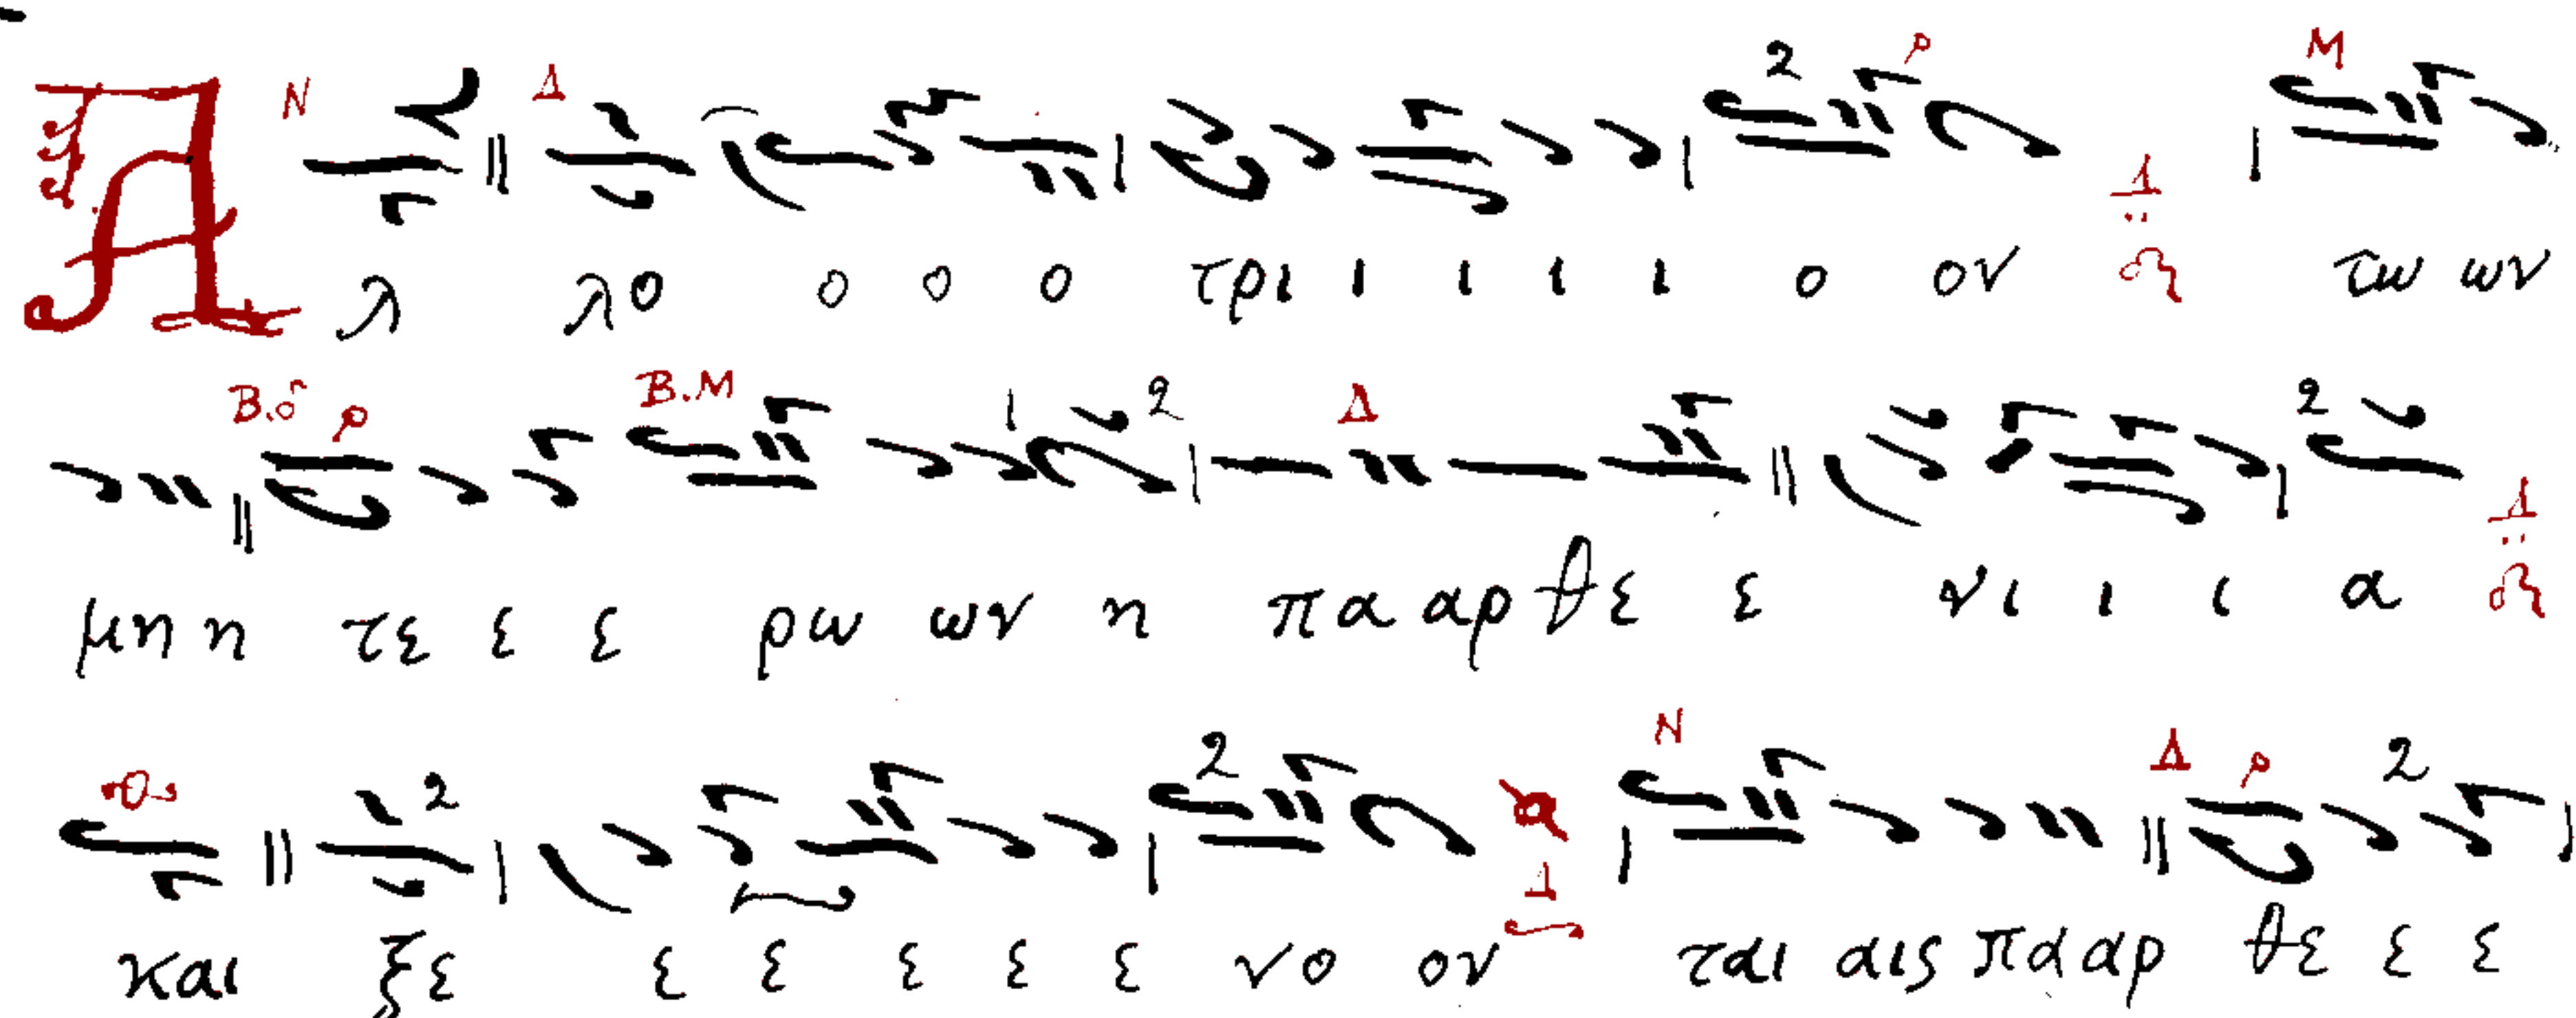 Α λ λο ο ο ο τρι ι ι ι ι ο ον τω ων
μη η τε ε ε ρω ων η πα αρ θε ε νι ι ι α
και ξε ε ε ε ε ε νο ον ται αις πα αρ θε ε ε